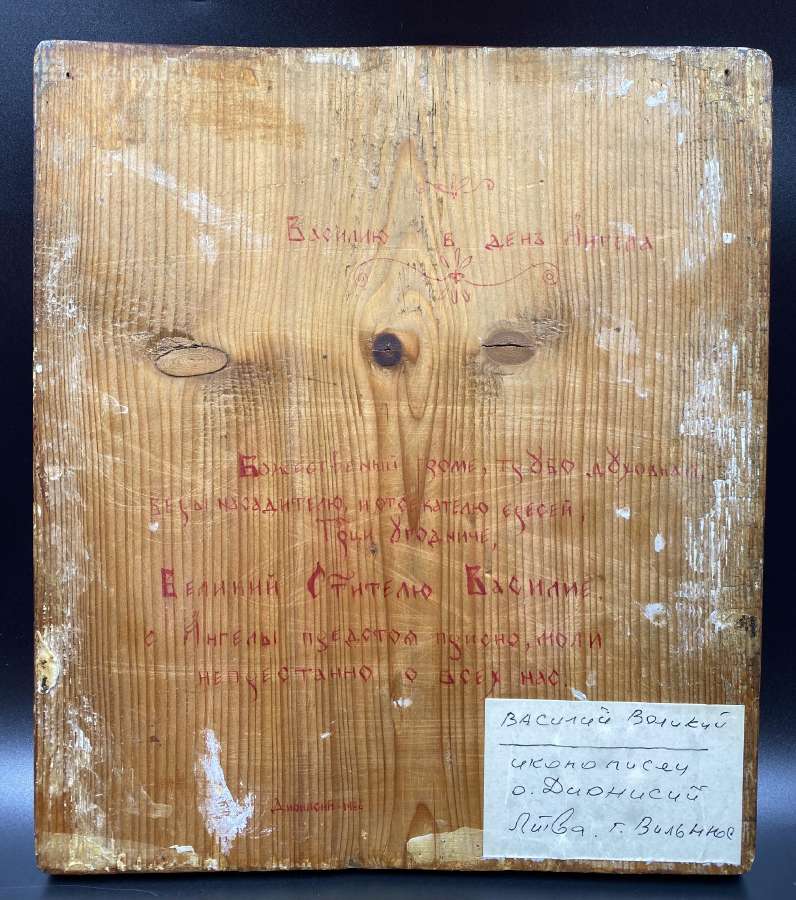 Василию в день Ангела
Божественный громе, трубо духовная,
веры насадителю, и отсекателю ересей,
Трци Угодниче,
Великий Стителю Василие.
с Ангелы предстоя присно, моли
непрестанно о всех нас.
Дионисий
Василий Великий
иконописец
о. Дионисий
Литва. г. Вильнюс